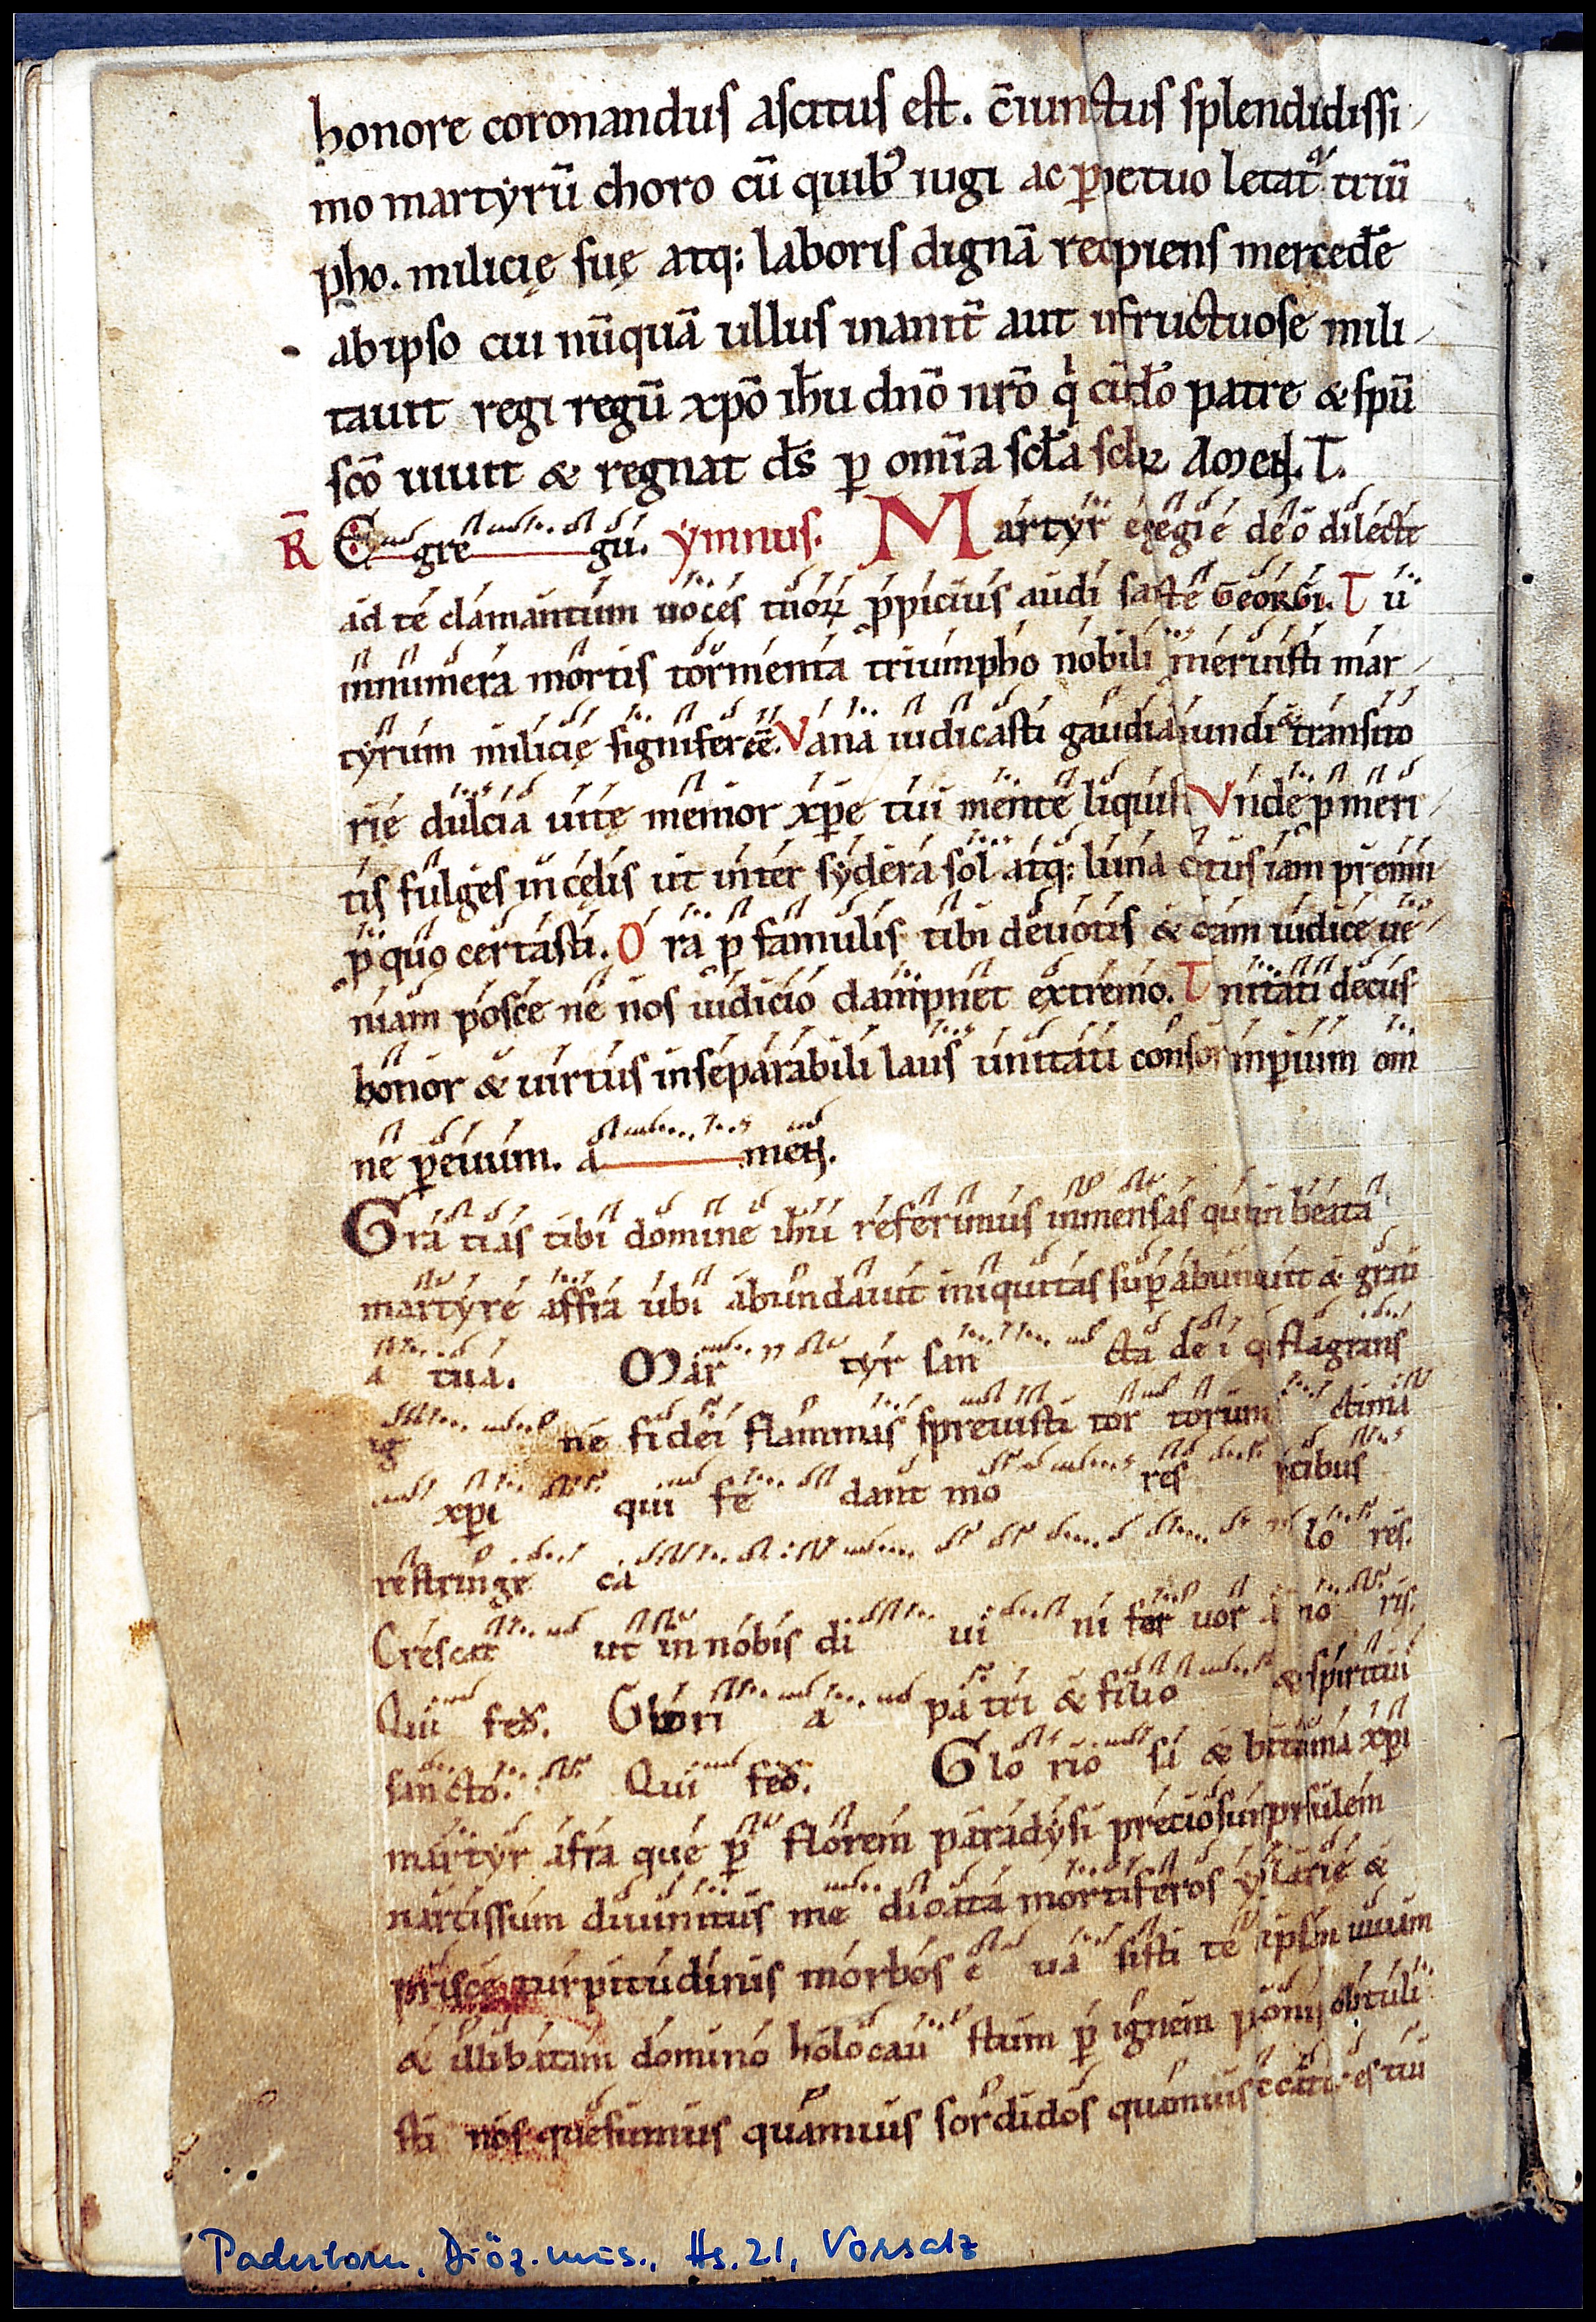 honore coronandus ascitus est. c̄iunctus splendidissi
mo martyrū choro cū quib᾽ iugi ac ꝑpetuo letat᷑ triū
pho. milicię suę atq; laboris dignā recipiens mercedē
ab ipso cui nūquā ullus inanit̄ aut infructuose mili
tauit regi regū xp̄o ih̄u dn̄o nr̄o qͥ cū d̄o patre & sp̄u
sc̄o uiuit & regnat d̄s ꝑ om̄ia scl̄a sclꝝ Amen. T.
R̄ E gre gu. ymnus. Martyr egregie deo dilecte
ad te clamantum uoces tuoꝝ ꝓpicius audi sancte Georgi. Tu
innumera mortis tormenta triumpho nobili meruisti mar
tyrum milicię signifer cē. Vana iudicasti gaudia mundi & transito
rię dulcia uitę memor xp̄e tui mente liquisti Vnde ꝓ meri
tis fulges in cęlis ut inter sydera sol atq; luna certus iam premii
ꝓ quo certasti. Ora ꝓ famulis tibi deuotis & iudice ue
niam posce ne nos iudicio dampnet extremo. Trinitati decus
honor & uirtus inseparabili laus unitati consors imꝑium om
ne ꝑ euum. a men.
Gra tias tibi domine ih̄u referimus inmensas qui in beata
martyre affra ubi abundauit iniquitas suꝑabundauit & grati
a tua. Mar tyr san cta de i q̄ flagrans
ig ne fidei flammas spreuisti tor torum
xp̄i qui fe dant mo res
restringe ca lo res.
Crescat ut in nobis di ui ni fer uor a mo ris.
Qui fed. Glori a pa tri & filio & spiritui
san cto. Qui fed. Glo rio sa & beatissima xp̄i
martyr afra que ꝑ florem paradysi preciosum presulem
narcissum diuinitus me dicata mortiferos &
prisce turpitudinis morbos e ua sisti te ipsam uiuam
& illibatam domino holocau stum ꝑ ignem obtuli
sti nos quesumus quamuis sordidos quamuis
Paderborn, Diöz.mus., Hs. 21, Vorsatz